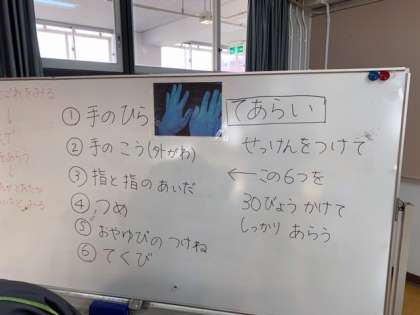 てあらい
① 手のひら
② 手のこう(外がわ)
③ 指と指のあいだ
④ つめ
⑤ おやゆびのつけね
⑥ てくび
せっけんをつけて
←この6つを
30びょうかけて
しっかりあらう